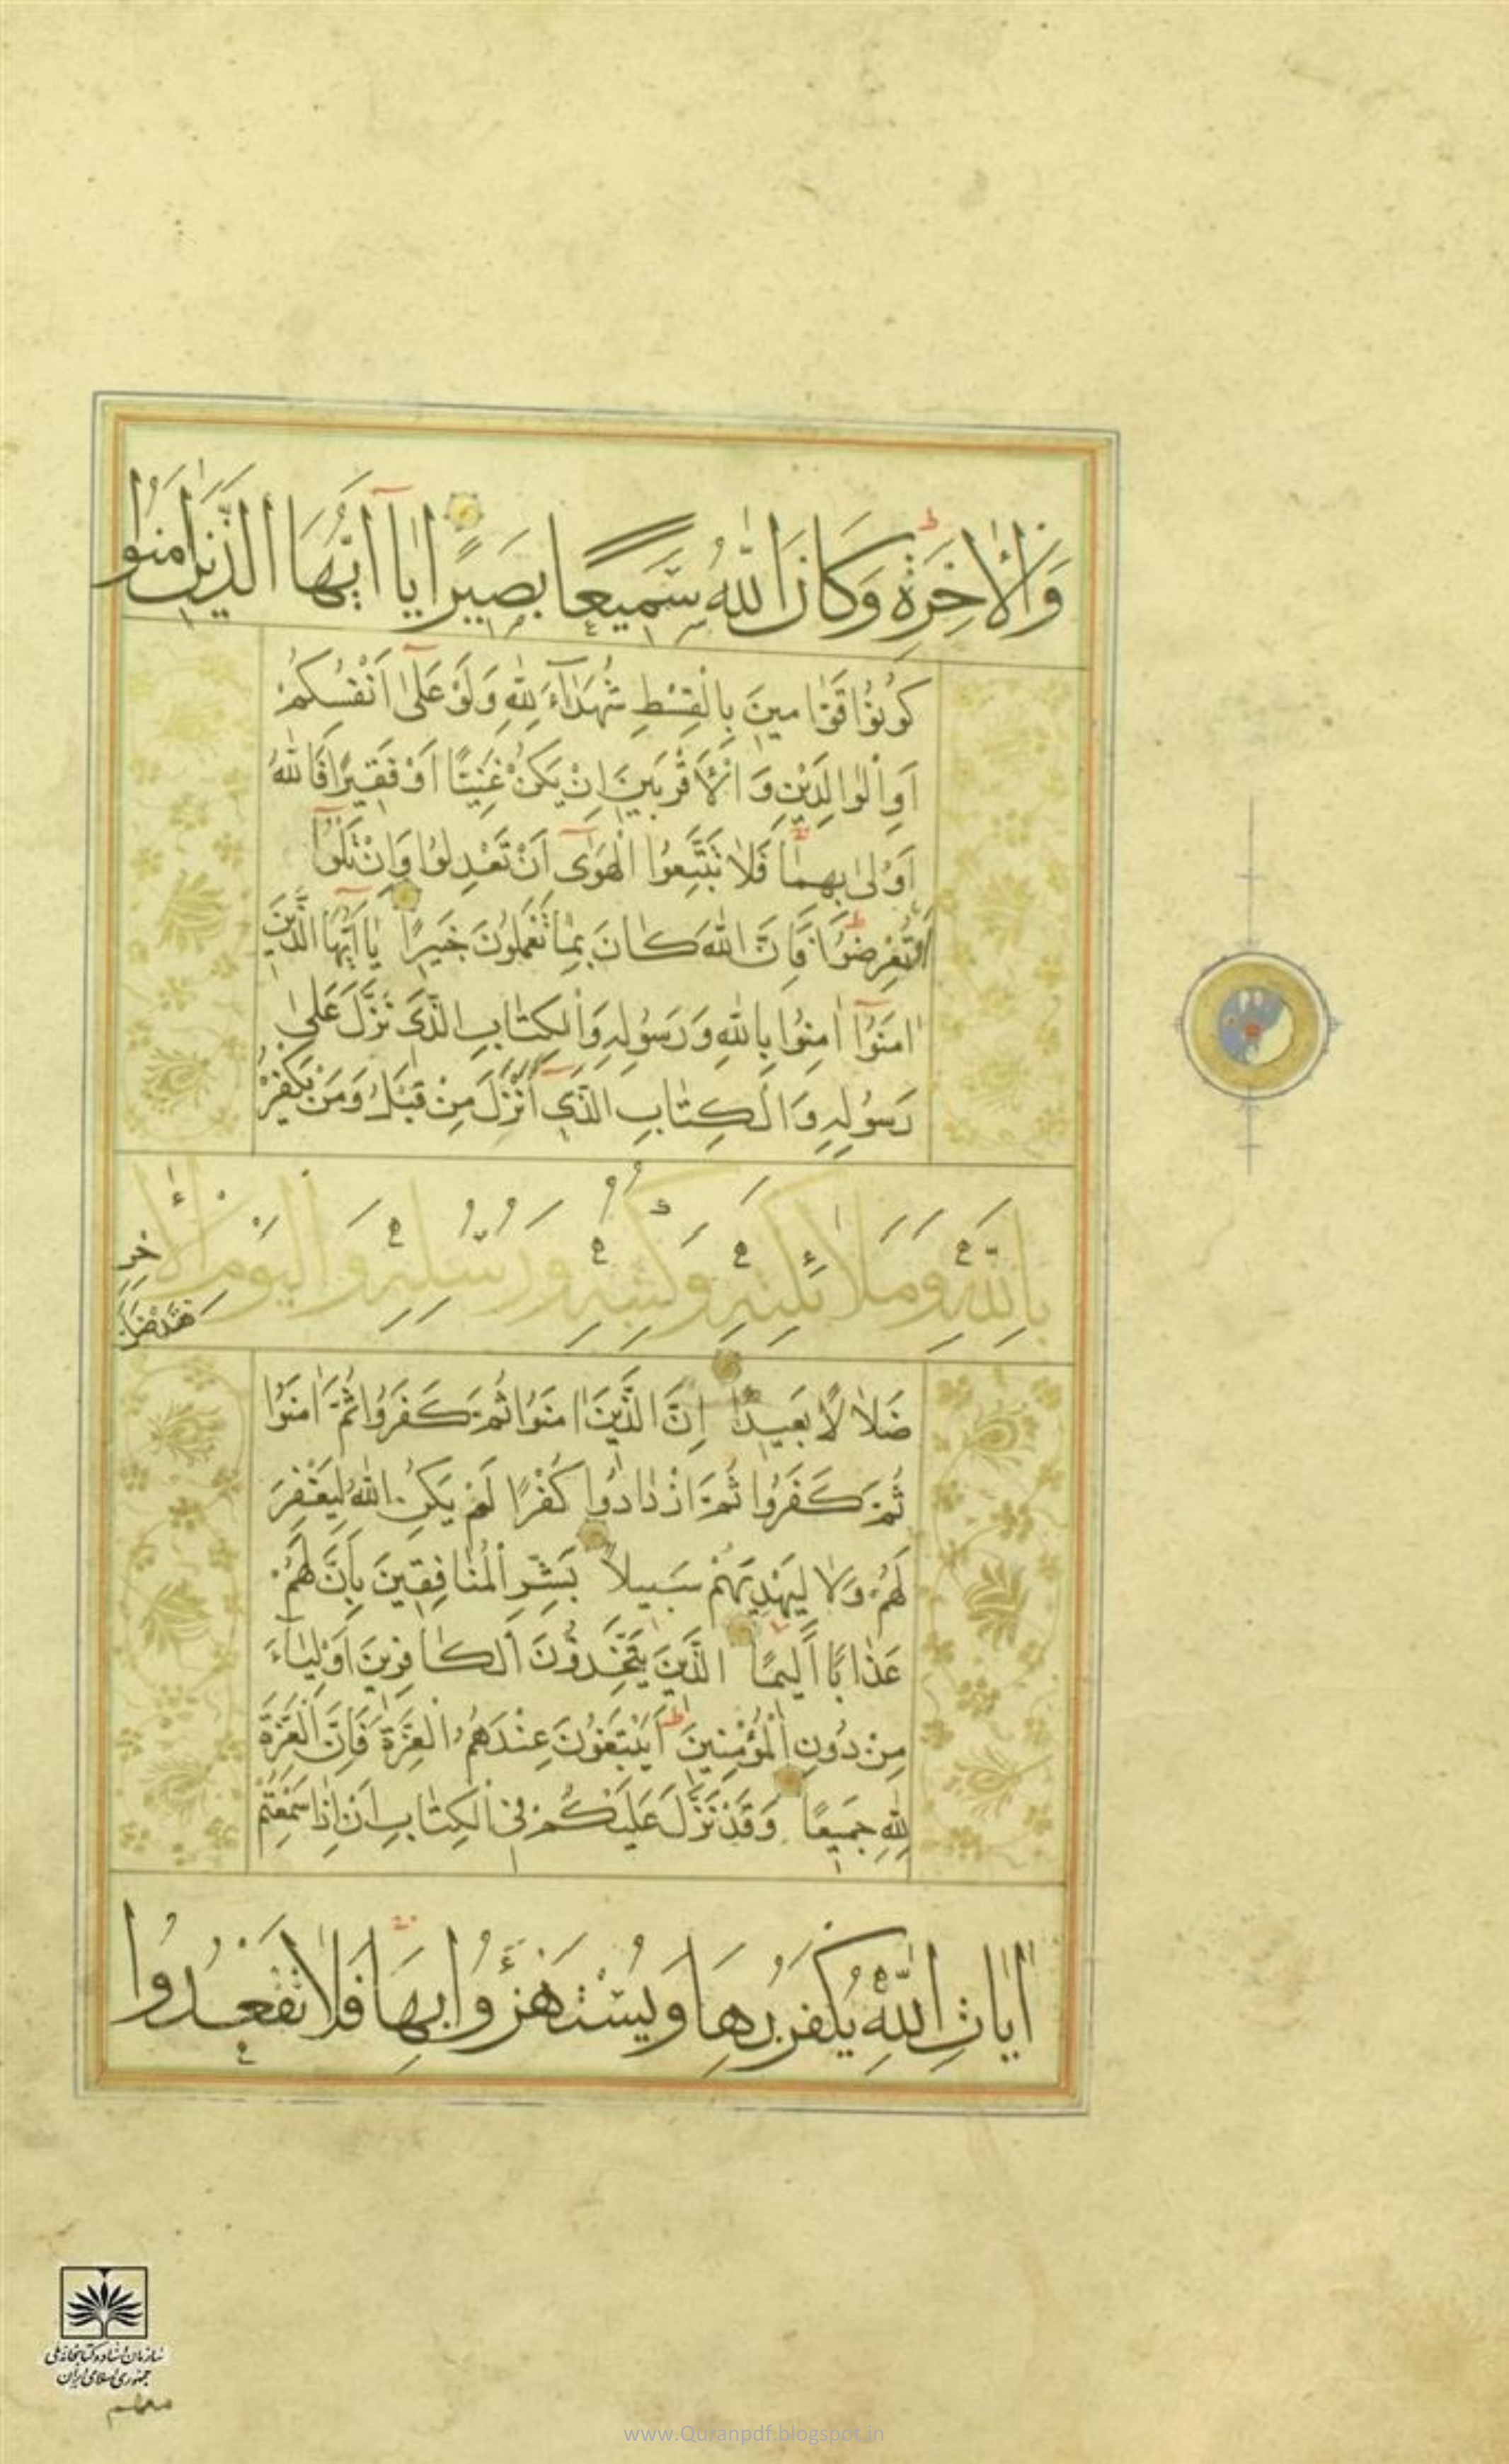 وَالْاٰخِرَةِ وَكَانَ اللّٰهُ سَمِيعًا بَصِيرًا يَا اَيُّهَا الَّذِينَ اٰمَنُوا
كُونُوا قَوَّامِينَ بِالْقِسْطِ شُهَدَاءَ لِلّٰهِ وَلَوْ عَلٰى اَنْفُسِكُمْ
اَوِ الْوَالِدَيْنِ وَالْاَقْرَبِينَ اِنْ يَكُنْ غَنِيًّا اَوْ فَقِيرًا فَاللّٰهُ
اَوْلٰى بِهِمَا فَلَا تَتَّبِعُوا الْهَوٰى اَنْ تَعْدِلُوا وَاِنْ تَلْوُوا
اَوْ تُعْرِضُوا فَاِنَّ اللّٰهَ كَانَ بِمَا تَعْمَلُونَ خَبِيرًا يَا اَيُّهَا الَّذِينَ
اٰمَنُوا اٰمِنُوا بِاللّٰهِ وَرَسُولِهِ وَالْكِتَابِ الَّذِى نَزَّلَ عَلٰى
رَسُولِهِ وَالْكِتَابِ الَّذِى اَنْزَلَ مِنْ قَبْلُ وَمَنْ يَكْفُرْ
بِاللّٰهِ وَمَلَائِكَتِهِ وَكُتُبِهِ وَرُسُلِهِ وَالْيَوْمِ الْاٰخِرِ
فَقَدْ ضَلَّ
ضَلَالًا بَعِيدًا اِنَّ الَّذِينَ اٰمَنُوا ثُمَّ كَفَرُوا ثُمَّ اٰمَنُوا
ثُمَّ كَفَرُوا ثُمَّ ازْدَادُوا كُفْرًا لَمْ يَكُنِ اللّٰهُ لِيَغْفِرَ
لَهُمْ وَلَا لِيَهْدِيَهُمْ سَبِيلًا بَشِّرِ الْمُنَافِقِينَ بِاَنَّ لَهُمْ
عَذَابًا اَلِيمًا الَّذِينَ يَتَّخِذُونَ الْكَافِرِينَ اَوْلِيَاءَ
مِنْ دُونِ الْمُؤْمِنِينَ اَيَبْتَغُونَ عِنْدَهُمُ الْعِزَّةَ فَاِنَّ الْعِزَّةَ
لِلّٰهِ جَمِيعًا وَقَدْ نَزَّلَ عَلَيْكُمْ فِى الْكِتَابِ اَنْ اِذَا سَمِعْتُمْ
اٰيَاتِ اللّٰهِ يُكْفَرُ بِهَا وَيُسْتَهْزَؤُا بِهَا فَلَا تَقْعُدُوا
سازمان اسناد و کتابخانه ملی
جمهوری اسلامی ایران
www.Quranpdf.blogspot.in